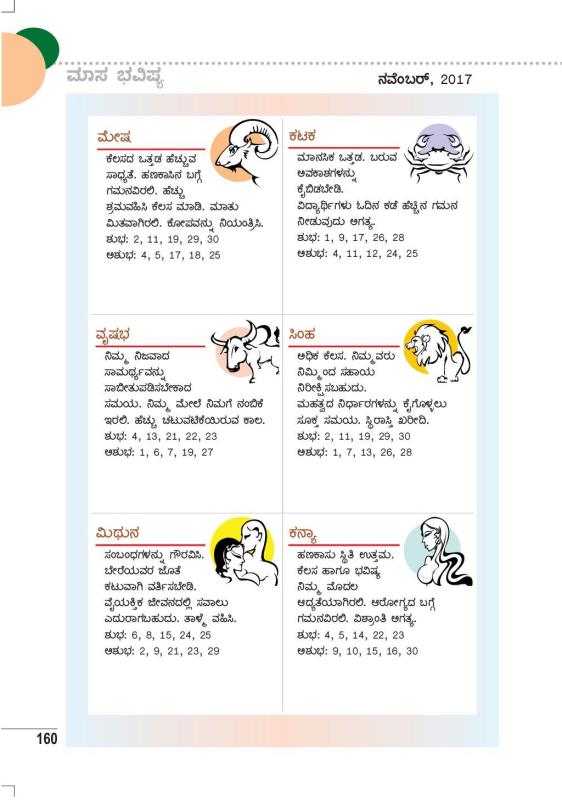 ಮಾಸ ಭವಿಷ್ಯ
ನವೆಂಬರ್, 2017
ಮೇಷ
ಕೆಲಸದ ಒತ್ತಡ ಹೆಚ್ಚುವ
ಸಾಧ್ಯತೆ. ಹಣಕಾಸಿನ ಬಗ್ಗೆ
ಗಮನವಿರಲಿ. ಹೆಚ್ಚು
ಶ್ರಮವಹಿಸಿ ಕೆಲಸ ಮಾಡಿ. ಮಾತು
ಮಿತವಾಗಿರಲಿ. ಕೋಪವನ್ನು ನಿಯಂತ್ರಿಸಿ.
ಶುಭ: 2, 11, 19, 29, 30
ಅಶುಭ: 4, 5, 17, 18, 25
ವೃಷಭ
ನಿಮ್ಮ ನಿಜವಾದ
ಸಾಮರ್ಥ್ಯವನ್ನು
ಸಾಬೀತುಪಡಿಸಬೇಕಾದ
ಸಮಯ. ನಿಮ್ಮ ಮೇಲೆ ನಿಮಗೆ ನಂಬಿಕೆ
ಇರಲಿ. ಹೆಚ್ಚು ಚಟುವಟಿಕೆಯಿರುವ ಕಾಲ.
ಶುಭ: 4, 13, 21, 22, 23
ಅಶುಭ: 1, 6, 7, 19, 27
ಮಿಥುನ
ಸಂಬಂಧಗಳನ್ನು ಗೌರವಿಸಿ.
ಬೇರೆಯವರ ಜೊತೆ
ಕಟುವಾಗಿ ವರ್ತಿಸಬೇಡಿ.
ವೈಯಕ್ತಿಕ ಜೀವನದಲ್ಲಿ ಸವಾಲು
ಎದುರಾಗಬಹುದು. ತಾಳ್ಮೆ ವಹಿಸಿ.
ಶುಭ: 6, 8, 15, 24, 25
ಅಶುಭ: 2, 9, 21, 23, 29
ಕಟಕ
ಮಾನಸಿಕ ಒತ್ತಡ. ಬರುವ
ಅವಕಾಶಗಳನ್ನು
ಕೈಬಿಡಬೇಡಿ.
ವಿದ್ಯಾರ್ಥಿಗಳು ಓದಿನ ಕಡೆ ಹೆಚ್ಚಿನ ಗಮನ
ನೀಡುವುದು ಅಗತ್ಯ.
ಶುಭ: 1, 9, 17, 26, 28
ಅಶುಭ: 4, 11, 12, 24, 25
ಸಿಂಹ
ಅಧಿಕ ಕೆಲಸ. ನಿಮ್ಮವರು
ನಿಮ್ಮಿಂದ ಸಹಾಯ
ನಿರೀಕ್ಷಿಸಬಹುದು.
ಮಹತ್ವದ ನಿರ್ಧಾರಗಳನ್ನು ಕೈಗೊಳ್ಳಲು
ಸೂಕ್ತ ಸಮಯ. ಸ್ಥಿರಾಸ್ತಿ ಖರೀದಿ.
ಶುಭ: 2, 11, 19, 29, 30
ಅಶುಭ: 1, 7, 13, 26, 28
ಕನ್ಯಾ
ಹಣಕಾಸು ಸ್ಥಿತಿ ಉತ್ತಮ.
ಕೆಲಸ ಹಾಗೂ ಭವಿಷ್ಯ
ನಿಮ್ಮ ಮೊದಲ
ಆದ್ಯತೆಯಾಗಿರಲಿ. ಆರೋಗ್ಯದ ಬಗ್ಗೆ
ಗಮನವಿರಲಿ. ವಿಶ್ರಾಂತಿ ಅಗತ್ಯ.
ಶುಭ: 4, 5, 14, 22, 23
ಅಶುಭ: 9, 10, 15, 16, 30
160